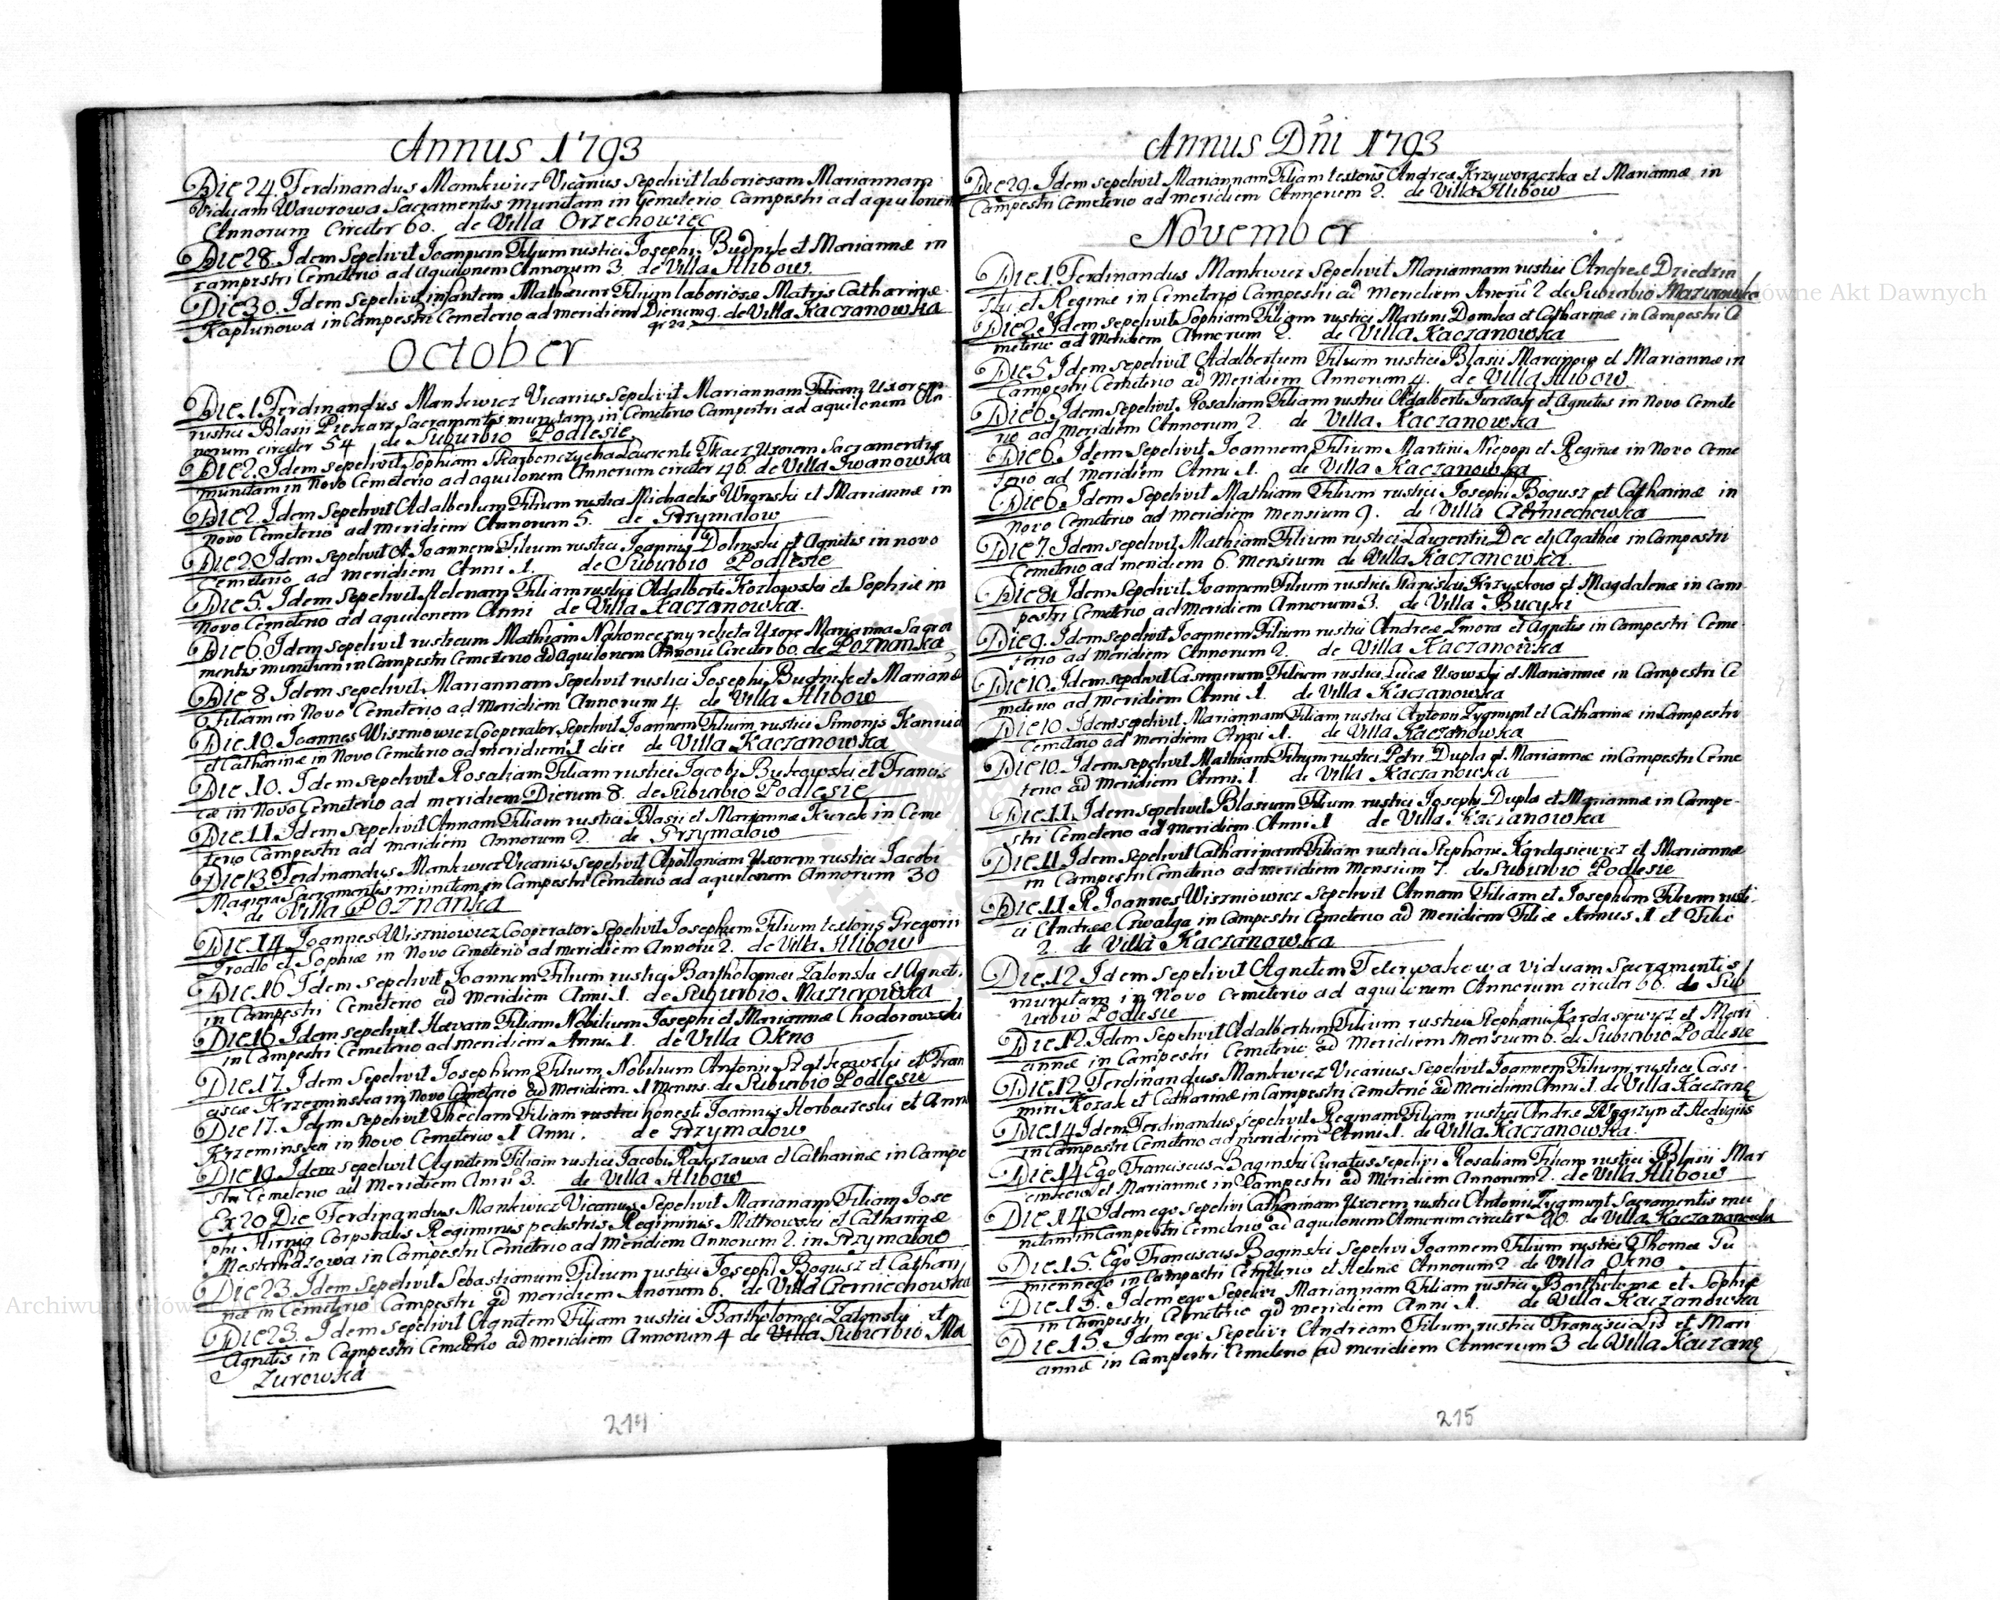 Annus 1793
Die 24. Ferdinandus Mankwicz Vicarius Sepelivit laboriosam Mariannam
Viduam Wawrowa Sacramentis munitam in Cemeterio Campestri ad aquilonem
Annorum Circiter 60. de Villa Orzechowiec
Die 28. Idem Sepelivit Joannem Filium rustici Josephi Budnik et Mariannæ in
campestri Cemeterio ad Aquilonem Annorum 3. de Villa Hlibow.
Die 30. Idem Sepelivit infantem Mathæum Filium laboriosæ Matris Catharinæ
Kaplunowa in Campestri Cemeterio ad meridiem Dierum 9. de Villa Kaczanowka
October
Die 1. Ferdinandus Mankwicz Vicarius Sepelivit Mariannam Filiam Uxorem
rustici Blasii Piekarz Sacramentis munitam in Cemeterio Campestri ad aquilonem An-
norum circiter 54 de Suburbio Podlesie
Die 2. Idem sepelivit Sophiam Laurentii Tkacz Uxorem Sacramentis
munitam in Novo Cemeterio ad aquilonem Annorum circiter 46. de Villa Iwanowka
Die 2. Idem Sepelivit Adalbertum Filium rustici Michaelis Wronski et Mariannæ in
novo Cemeterio ad meridiem Annorum 5. de Przymalow
Die 2. Idem Sepelivit Joannem Filium rustici Joannis Dolinski et Agnetis in novo
Cemeterio ad meridiem Anni 1. de Suburbio Podlesie
Die 5. Idem Sepelivit Helenam Filiam rustici Adalberti Kozlowski et Sophiæ in
Novo Cemeterio ad aquilonem Anni de Villa Kaczanowka.
Die 6. Idem Sepelivit rusticum Mathiam Nakoneczny relicta Uxore Marianna Sacra
mentis munitum in Campestri Cemeterio ad Aquilonem Annorū Circiter 60. de Poznanka
Die 8 Idem sepelivit Mariannam Sepelivit rustici Josephi Budnik et Mariannæ
Filiam in Novo Cemeterio ad Meridiem Annorum 4. de Villa Hlibow
Die 10. Joannes Wiszniowicz Cooperator Sepelivit Joannem Filium rustici Simonis
et Catharinæ in Novo Cemeterio ad meridiem 1 diei de Villa Kaczanowka
Die 10. Idem Sepelivit Rosaliam Filiam rustici Jacobi Bukowski et Francis
cæ in Novo Cemeterio ad meridiem Dierum 8. de Suburbio Podlesie
Die 11. Idem Sepelivit Annam Filiam rustici Blasii et Mariannæ Kurek in Ceme
terio Campestri ad meridiem Annorum 2. de Przymalow
Die 13. Ferdinandus Mankwicz Vicarius Sepelivit Apolloniam Uxorem rustici Jacobi
Magiera Sacramentis munitam in Campestri Cemeterio ad aquilonem Annorum 30
de Villa Poznanka
Die 14 Joannes Wiszniowicz Cooperator Sepelivit Josephum Filium textoris Gregorii
Zrodlo et Sophiæ in Novo Cemeterio ad meridiem Annorū 2. de Villa Hlibow
Die 16 Idem sepelivit Joannem Filium rustici Bartholomæi Zalonski et Agnet.
in Campestri Cemeterio ad meridiem Anni 1. de Suburbio Mazurowka
Die 16. Idem sepelivit Hævam Filiam Nobilium Josephi et Mariannæ Chodorowski
in Campestri Cemeterio ad meridiem Anni 1. de Villa Okno
Die 17. Idem Sepelivit Josephum Filium Nobilium Antonii et Fran
ciscæ Krzeminska in novo Cemeterio ad Meridiem. 1 Mensis. de Suburbio Podlesie
Die 17. Idem Sepelivit Theclam Filiam rustici honesti Joannis Horbaczeski et Annæ
Krzeminska in Novo Cemeterio 1 Anni. de Przymalow
Die 19. Idem sepelivit Agnetem Filiam rustici Jacobi et Catharinæ in Campe
stri Cemeterio ad Meridiem Anni 3. de Villa Hlibow
Ex 20 Die Ferdinandus Mankwicz Vicarius Sepelivit Mariannam Filiam Jose
phi Hirnig Corporalis Regiminis pedestris Regiminis Mittrowski et Catharinæ
in Campestri Cemeterio ad meridiem Annorum 2. in Przymalow
Die 23. Idem Sepelivit Sebastianum Filium rustici Josephi Bogusz et Cathari
næ in Cemeterio Campestri ad meridiem Anorum 6. de Villa Czerniechowka
Die 23. Idem sepelivit Agnetem Filiam rustici Bartholomæi Zalonski et
Agnetis in Campestri Cemeterio ad meridiem Annorum 4 de Villa Suburbio Ma
zurowka
214
Annus Dñi 1793
Die 29. Idem sepelivit Mariannam Filiam textoris Andreæ Krzyworączka et Mariannæ in
Campestri Cemeterio ad meridiem Annorum 2. de Villa Hlibow
November
Die 1. Ferdinandus Mankwicz Sepelivit Mariannam rustici Andreæ Dziedzin
Filii et Reginæ in Cemeterio Campestri ad meridiem Anorū 2 de Suburbio Mazurowka
Die 2. Idem sepelivit Sophiam Filiam rustici Martini Domka et Catharinæ in Campestri Ce
meterio ad Meridiem Annorum 2. de Villa Kaczanowka
Die 5 Idem sepelivit Adalbertum Filium rustici Blasii et Mariannæ in
Campestri Cemeterio ad Meridiem Annorum 4. de Villa Hlibow
Die 6. Idem sepelivit Rosaliam Filiam rustici Adalberti Turczak et Agnetis in Novo Cemete
rio ad Meridiem Annorum 2. de Villa Kaczanowka
Die 6. Idem Sepelivit Joannem Filium Martini Niepop et Reginæ in Novo Ceme
terio ad meridiem Anni 1. de Villa Kaczanowka
Die 6. Idem Sepelivit Mathiam Filium rustici Josephi Bogusz et Catharinæ in
Novo Cemeterio ad meridiem Mensium 9. de Villa Czerniechowka
Die 7. Idem sepelivit Mathiam Filium rustici Laurentii Dec et Agathæ in Campestri
Cemeterio ad meridiem 6. Mensium de Villa Kaczanowka.
Die 8. Idem Sepelivit Joannem Filium rustici Stanislai Krzyskow et Magdalenæ in Cam-
pestri Cemeterio ad Meridiem Annorum 3. de Villa Bucyki
Die 9. Idem Sepelivit Joannem Filium rustici Andreæ Zmora et Agnetis in Campestri Ceme-
terio ad meridiem Annorum 2. de Villa Kaczanowka
Die 10. Idem sepelivit Casimirum Filium rustici Lucæ Usowski et Mariannæ in Campestri Ce
meterio ad meridiem Anni 1. de Villa Kaczanowka
Die 10. Idem sepelivit Mariannam Filiam rustici Antonii Zygmunt et Catharinæ in Campestri
Cemeterio ad meridiem Anni 1. de Villa Kaczanowka
Die 10. Idem sepelivit Mathiam Filium rustici Petri Dupla et Mariannæ in Campestri Ceme
terio ad meridiem Anni 1. de Villa Kaczanowka
Die 11. Idem sepelivit Blasium Filium rustici Josephi Dupla et Mariannæ in Campe-
stri Cemeterio ad Meridiem Anni 1 de Villa Kaczanowka
Die 11 Idem Sepelivit Catharinam Filiam rustici Stephani Kardasiewicz et Mariannæ
in Campestri Cemeterio ad meridiem Mensium 7. de Suburbio Podlesie
Die 11 R. Joannes Wiszniowicz Sepelivit Annam Filiam et Josephum Filium rusti-
ci Andreæ Cwalga in Campestri Cemeterio ad Meridiem Filiæ Annus 1 et Filii
2. de Villa Kaczanowka
Die 12 Idem Sepelivit Agnetem Teterwakowa viduam Sacramentis
munitam in Novo Cemeterio ad aquilonem Annorum circiter 66. de Sub
urbio Podlesie
Die 12. Idem Sepelivit Adalbertum Filium rustici Stephani Kardasiewicz et Mari
annæ in Campestri Cemeterio ad Meridiem Mensium 6. de Suburbio Podlesie
Die 12. Ferdinandus Mankwicz Vicarius Sepelivit Joannem Filium rustici Casi-
miri Kozak et Catharinæ in Campestri Cemeterio ad Meridiem Anni 1. de Villa Kaczano
Die 14 Idem Ferdinandus Sepelivit Reginam Filiam rustici Andreæ Węgrzyn et Hedvigis
in Campestri Cemeterio ad meridiem Anni 1. de Villa Kaczanowka.
Die 14 Ego Franciscus Baginski Curatus sepelivi Rosaliam Filiam rustici Blasii Mar
et Mariannæ in Campestri ad Meridiem Annorum 2. de Villa Hlibow
Die 14 Idem ego Sepelivi Catharinam Uxorem rustici Antonii Zygmunt Sacramentis mu
nitam in Campestri Cemeterio ad aquilonem Annorum circiter 40. de Villa Kaczanowka
Die 15. Ego Franciscus Baginski Sepelivi Joannem Filium rustici Thomæ Gu
miennego in Campestri Cemeterio et Helenæ Annorum 2. de Villa Okno
Die 15. Idem ego Sepelivi Mariannam Filiam rustici Bartholomæ et Sophiæ
in Campestri Cemeterio ad meridiem Anni 1. de Villa Kaczanowka
Die 15. Idem ego Sepelivi Andream Filium rustici Francisci Lis et Mari
annæ in Campestri Cemeterio ad meridiem Annorum 3 de Villa Kaczano
215
Archiwum Główne Akt Dawnych